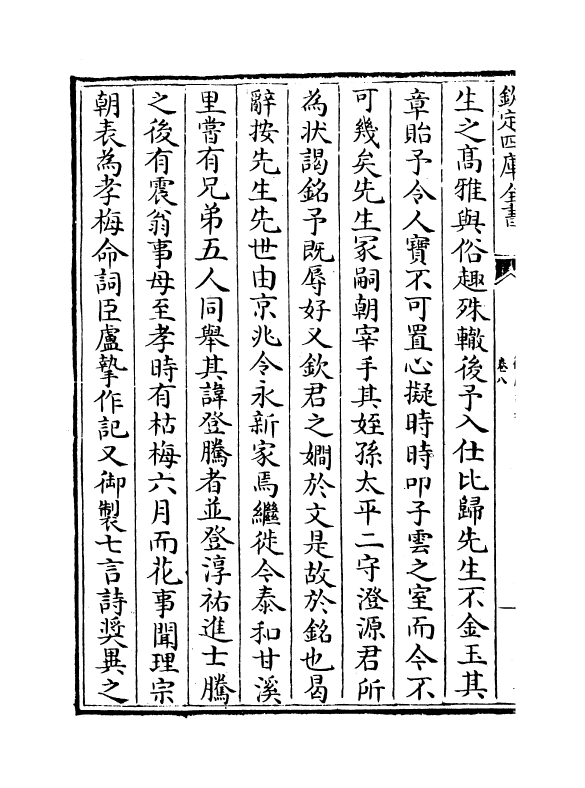 欽定四庫全書
卷八
生之髙雅與俗趣殊轍後予入仕比歸先生不金玉其
章貽予令人寳不可置心擬時時叩子雲之室而今不
可幾矣先生冢嗣朝宰手其姪孫太平二守澄源君所
為状謁銘予既辱好又欽君之嫺於文是故於銘也曷
辭按先生先世由京兆令永新家焉繼徙令泰和甘溪
里嘗有兄弟五人同舉其諱登騰者並登淳祐進士騰
之後有震翁事母至孝時有枯梅六月而花事聞理宗
朝表為孝梅命詞臣盧摯作記又御製七言詩奨異之